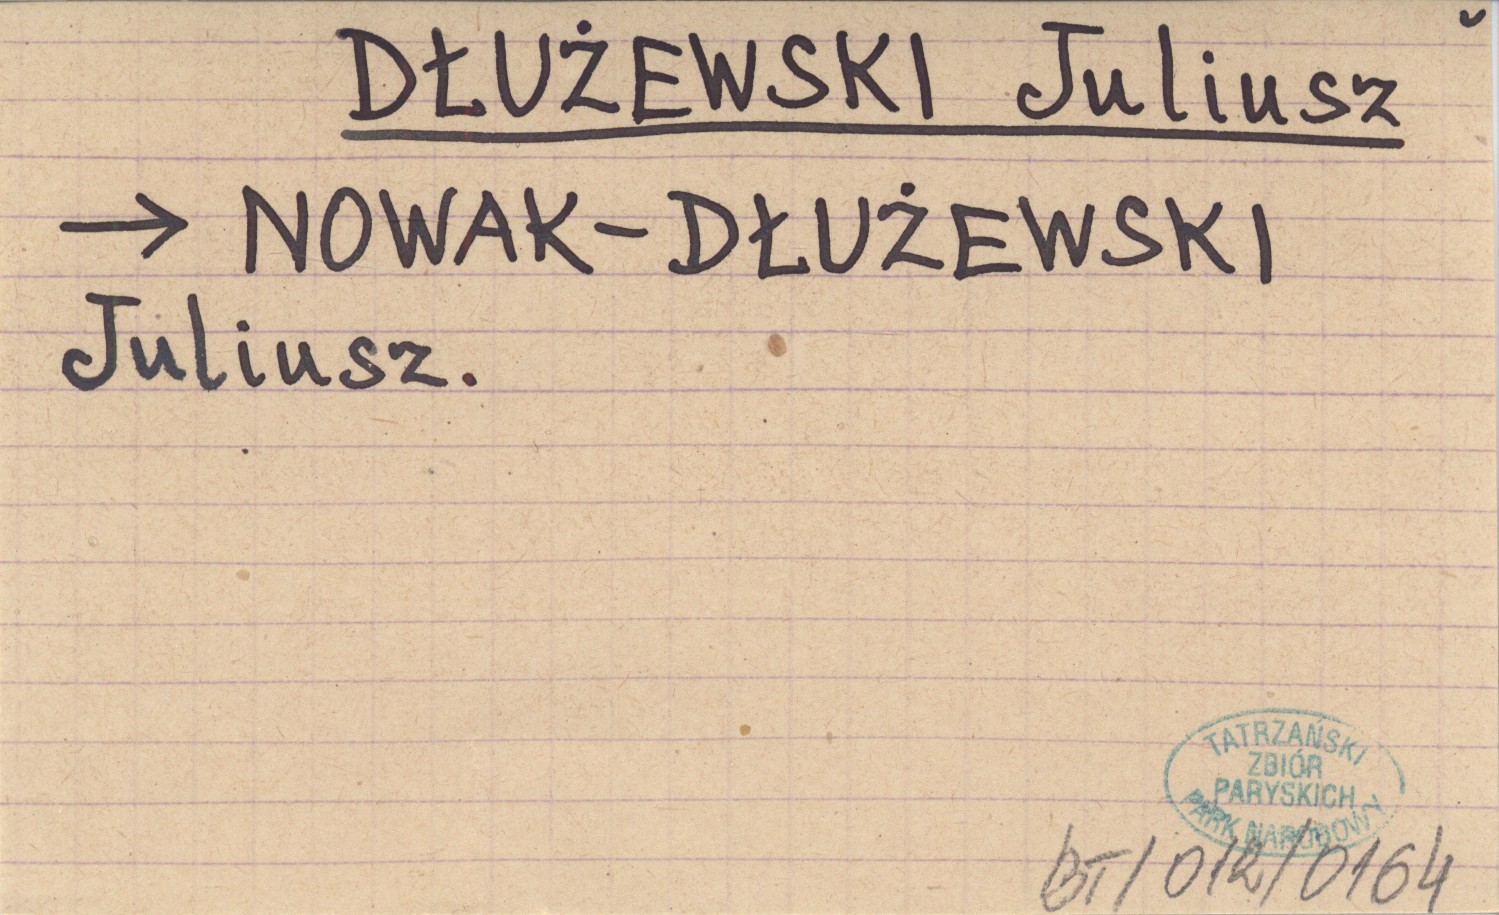 DŁUŻEWSKI Juliusz
→ NOWAK-DŁUŻEWSKI
Juliusz.
TATRZAŃSKI
ZBIÓR
PARYSKICH
PARK NARODOWY
BT/012/0164